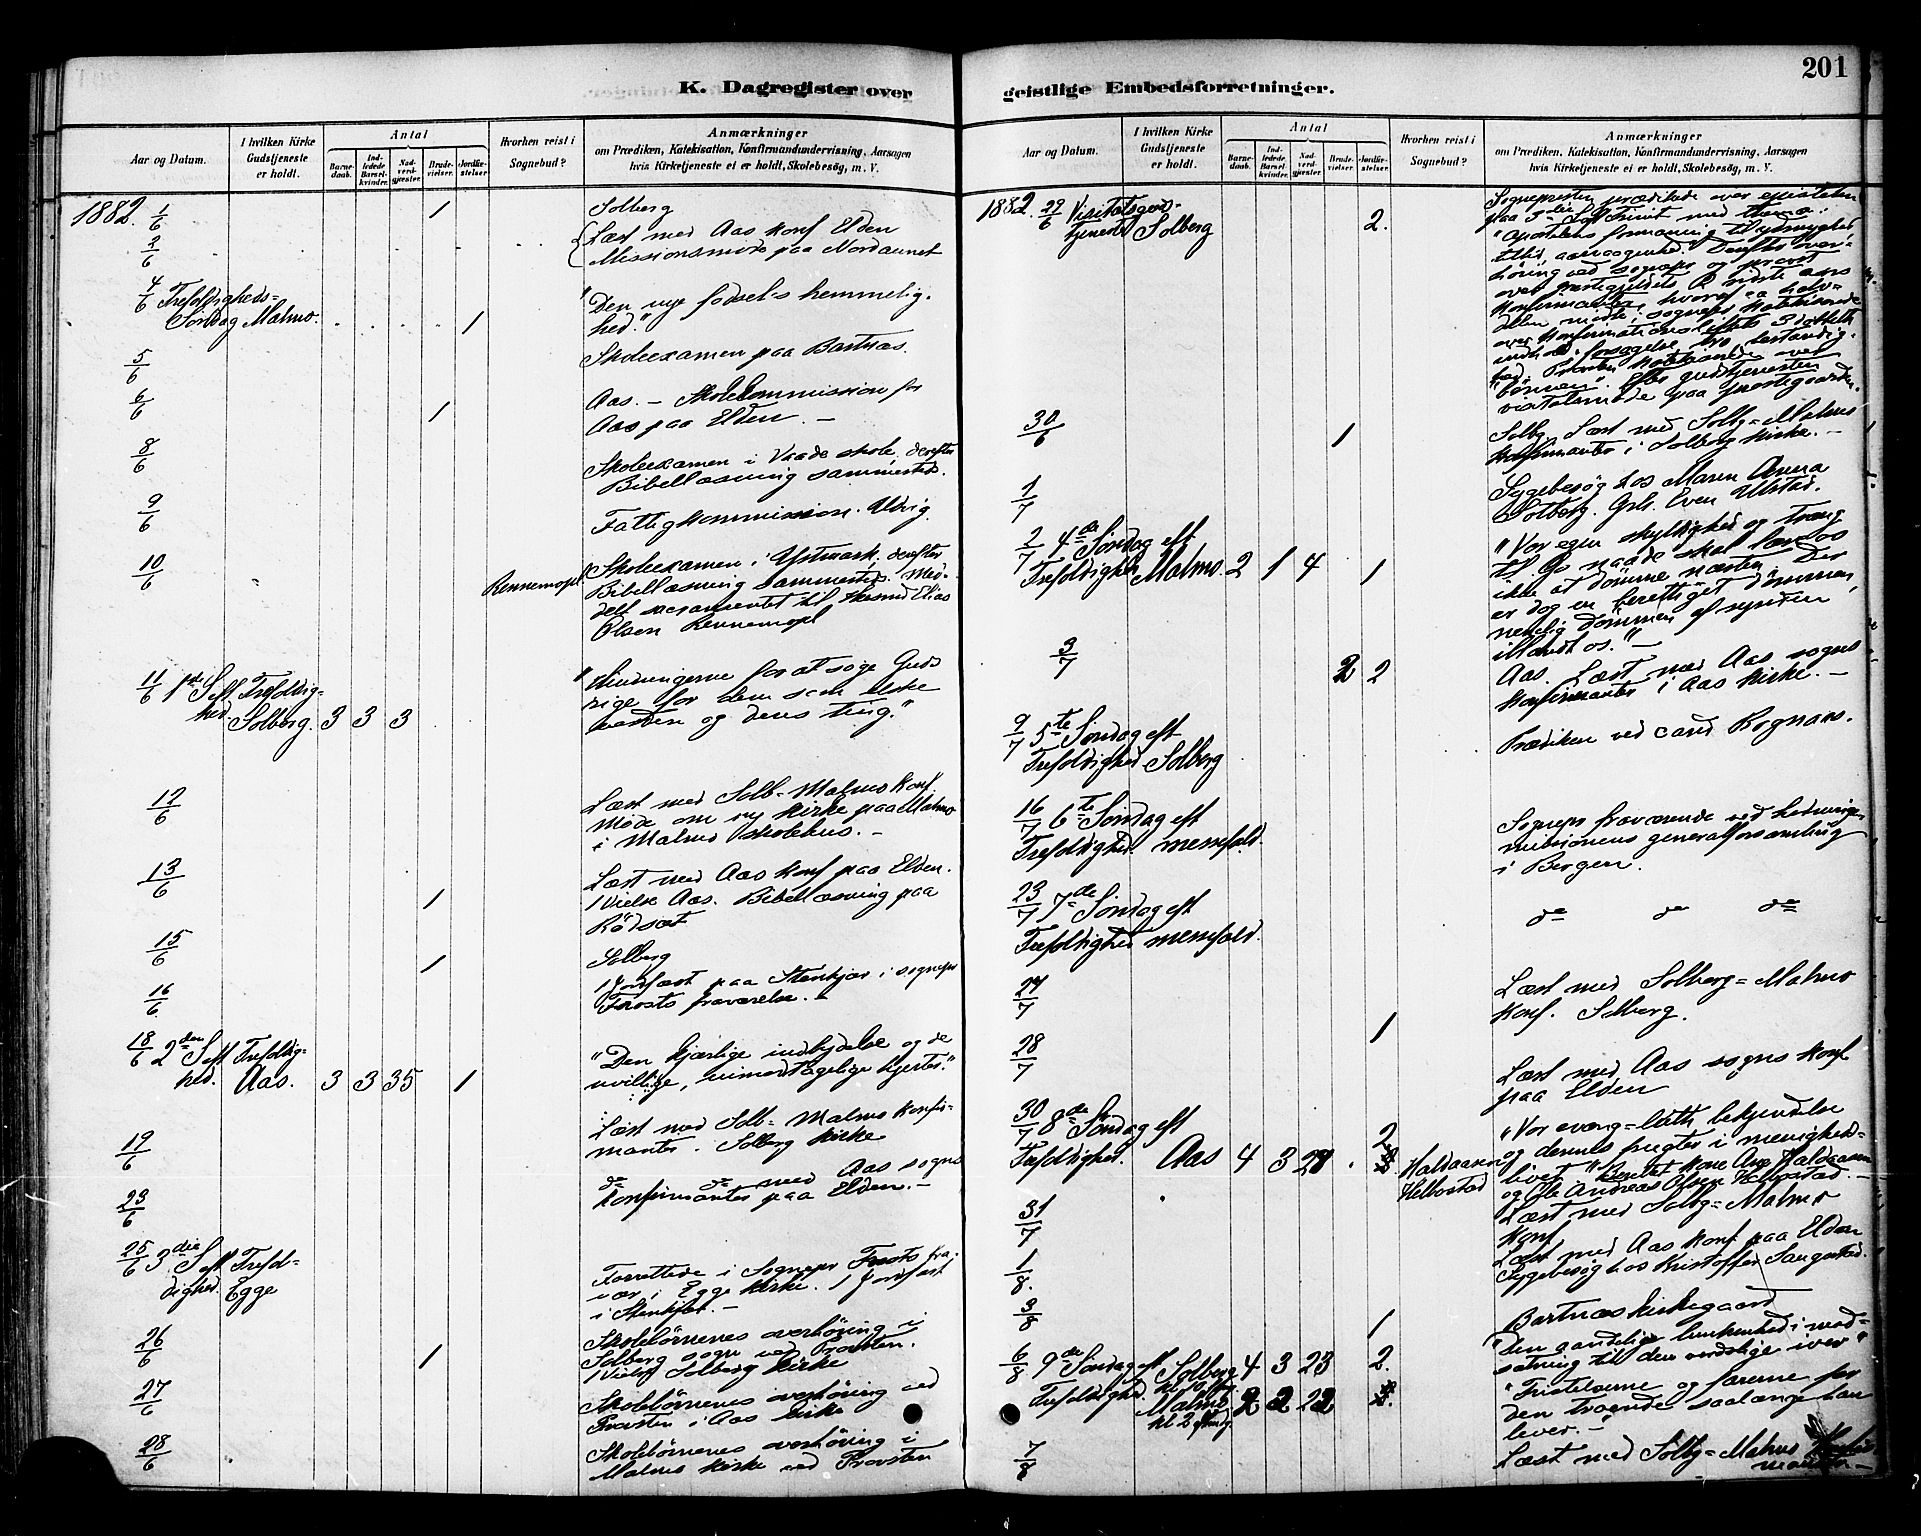 201
K. Dagregister over
Aar og Datum.
I hvilken Kirke
Gudstjeneste
er holdt.
Antal
Barne-
daab.
Ind-
ledede
Barsel-
kvinder.
Nad-
verd-
gjæster.
Brude-
vielser.
Jordfæ-
stelser.
Hvorhen reist i
Sognebud?
Anmærkninger
om Prædiken, Katekisation, Konfirmandundervisning, Aarsagen
hvis Kirketjeneste ei er holdt, Skolebesøg, m. V.
1882. 1/6 1 Solberg
2/6 Læst med Aas konf Elden
Missionsmøde paa Nordaunet
4/6 Trefoldigheds=
Søndag Malmo. 1
"Den nye fødsels hemmelig-
hed."
5/6 Skoleexamen paa Bartnæs.
6/6 1 Aas. – Skolekommission for
Aas paa Elden. –
8/6 Skoleexamen i Vaade skole, derefter
Bibellæsning sammesteds.
9/6 Fattigkommission.
10/6 Rennemopl Skoleexamen i Ystmark, derefter
Bibellæsning sammesteds. Med-
delt sacramentet til Elias
Olsen Rennemopl
11/6 1ste S eft Trefoldig-
hed. Solberg. 3 3 3
"Hindringerne for at søge Guds
rige for dem som elske
verden og dens ting."
12/6 Læst med Solb=Malmo konf.
Møde om ny kirke paa Malmo
i Malmo skolehus. –
13/6 1 Læst med Aas konf paa Elden.
1 Vielse Aas. Bibellæsning paa
Rødsæt
15/6 1 Solberg
16/6 1 Jordfæst paa Stenkjær i sognepr
Frosts fraværelse. –
18/6 2den S eft Trefoldig-
hed. Aas. 3 3 35 1
"Den kjærlige indbydelse og de
uvillige, uimodtagelige hjerter."
19/6 Læst med Solb=Malmo konfir-
manter. Solberg kirke
23/6 do do med Aas sogns
konfirmanter paa Elden. –
25/6 3die S eft Trefol-
dighed. Egge
Forrettede i Sognepr Frosts fra-
vær i Egge kirke. 1 Jordfæst
i Stenkjær. –
26/6 1 Skolebørnenes overhøring i
Solberg sogn ved Provsten.
1 Vielse Solberg kirke
27/6 Skolebørnenes overhøring ved
Provsten i Aas kirke
28/6 Skolebørnenes overhøring i
Malmo kirke ved Provsten
geistlige Embedsforretninger.
Aar og Datum.
I hvilken Kirke
Gudstjeneste
er holdt.
Antal
Barne-
daab.
Ind-
ledede
Barsel-
kvinder.
Nad-
verd-
gjæster.
Brude-
vielser.
Jordfæ-
stelser.
Hvorhen reist i
Sognebud?
Anmærkninger
om Prædiken, Katekisation, Konfirmandundervisning, Aarsagen
hvis Kirketjeneste ei er holdt, Skolebesøg, m. V.
1882. 29/6 Visitatsguds-
tjeneste Solberg 2.
Sognepresten prædikede over epistelen
paa 3die S eft Trinit med thema:
"Apostelens formaning til ydmyghed
tillid, aarvaagenhed." Derefter over-
høring ved sognepr og provst
over præstegjeldets 2 sidste aars
konfirmanter, hvoraf ca halv-
delen mødte; sognepr katekiserede
over konfirmationsløftets 3 dobbelte
indhold: forsagelse, tro, bestandig-
hed. Provsten katekiserede over
"bønnen". Efter gudstjenesten
visitatsmøde paa præstegaarden.
30/6 1 Solbg. Læst med Solbg=Malmo
konfirmanter i Solberg kirke. –
1/7 Sygebesøg hos Maren Anna
Solberg. Even Ulstad.
2/7 4de Søndag eft
Trefoldighed Malmo. 2 1 4 1
"Vor egen skyldighed og trang
til Gs naade skal lære os
ikke at dømme næsten. Der
er dog en berettiget dømmen,
nemlig dømmen af synden
iblandt os." –
3/7 2 2 Aas. Læst med Aas sogns
konfirmanter i Aas kirke. –
9/7 5te Søndag eft
Trefoldighed Solberg
Prædiken ved cand Rognaas.
16/7 6te Søndag eft
Trefoldighed. messefald.
Sognepr fraværende ved hedninge-
missionens generalforsamling
i Bergen.
23/7 7de Søndag eft
Trefoldighed messefald.
do do do
27/7 1 Læst med Solberg=Malmo
konf. Solberg.
28/7 Læst med Aas sogns konf
paa Elden
30/7 8de Søndag eft
Trefoldighed. Aas 4 3 27 2
Haldaasen
Helbostad
"Vor evang=luth bekjendelse
og dennes frugter i menigheds-
livet" Berettet kone Haldaasen
og Ole Andreas Olsen Helbostad. –
31/7 Læst med Solbg=Malmo
konf
1/8. Læst med Aas konf paa Elden
Sygebesøg hos Kristoffer Saugestad.
3/8 1 Bartnæs kirkegaard
6/8 9de Søndag eft
Trefoldighed.
Solberg 4 3 23 2.
Malmo 2 2 22
kl 2
"Den aandelige lunkenhed i mod-
sætning til den verdslige iver"
"Fristelserne og farerne for
den troende saalænge han
lever. –
7/8 Læst med Solbg=Malmo